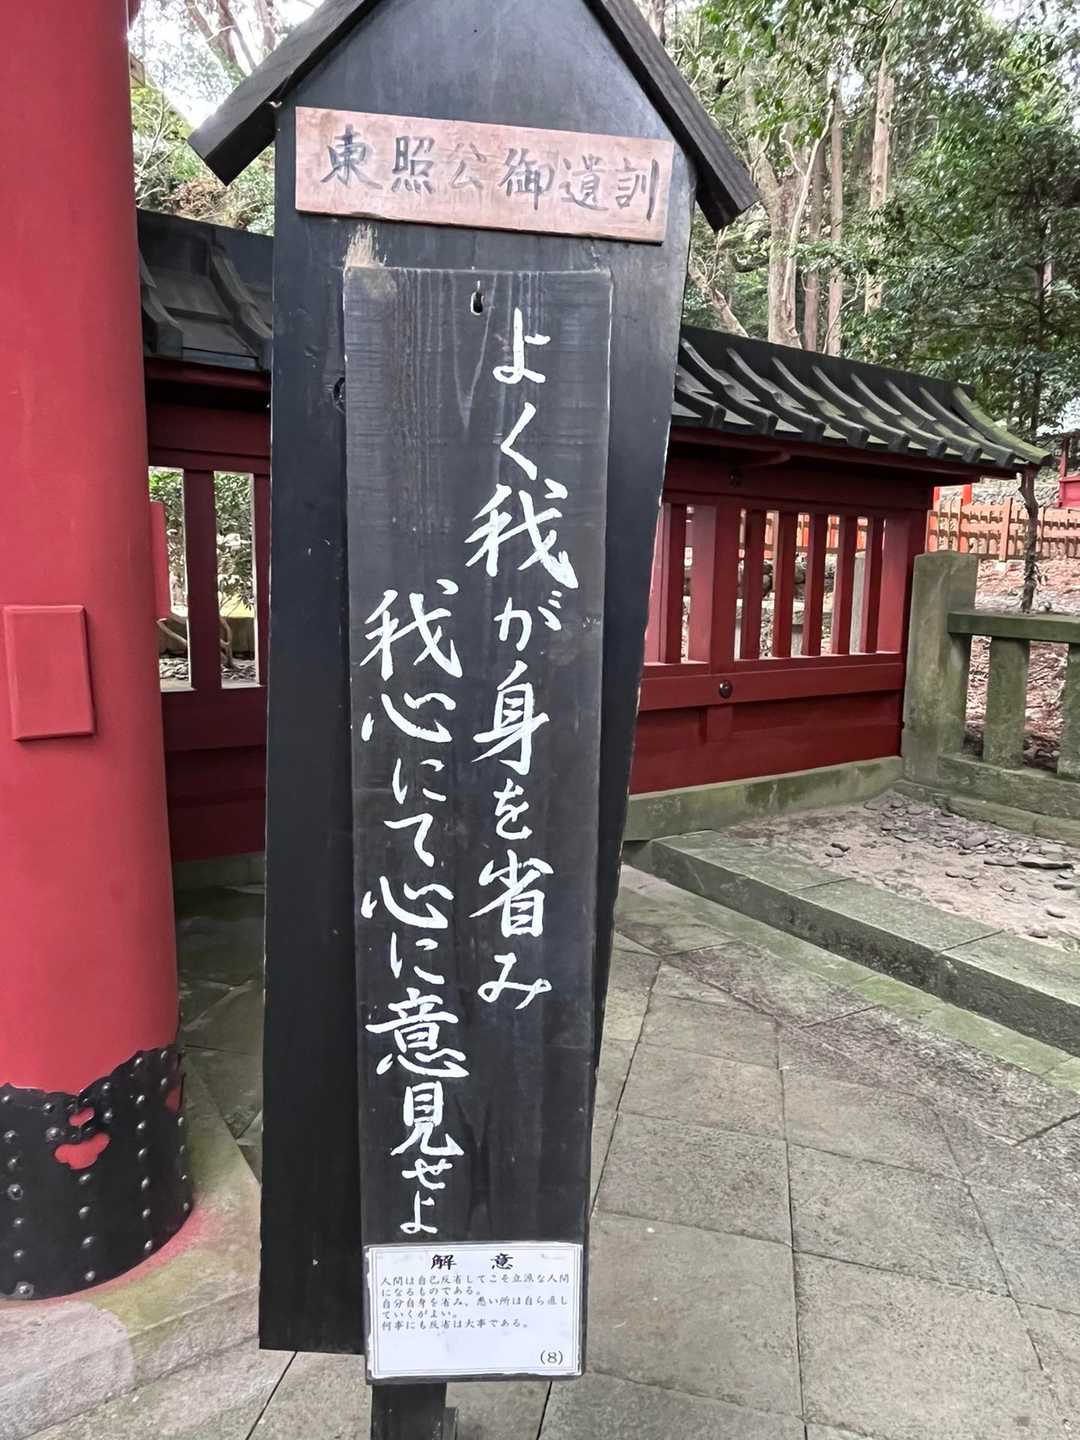 東照公御遺訓
よく我が身を省み
我心にて心に意見せよ
解 意
人間は自己反省してこそ立派な人間
になるものである。
自分自身を省み、悪い所は自ら直し
ていくがよい。
何事にも反省は大事である。
(8)